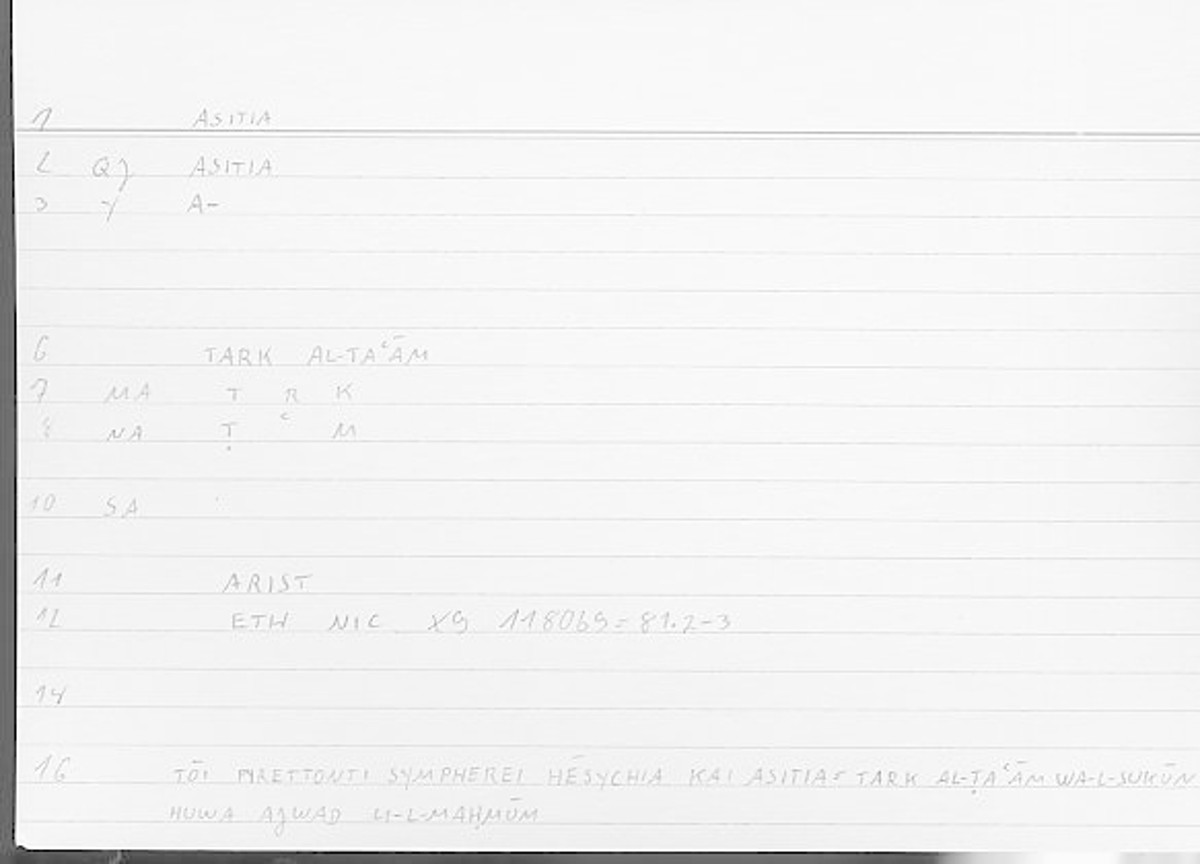 1 ASITIA
2 Q} ASITIA
3 γ A-
6 TARK AL-TAʿĀM
7 MA T R K
8 NA Ṭ ʿ M
10 SA
11 ARIST
12 ETH NIC X9 1180b9=81.2-3
14
16 TŌI PYRETTONTI SYMPHEREI HĒSYCHIA KAI ASITIA= TARK AL-ṬAʿĀM WA-L-SUKŪN
HUWA AǧWAD LI-L-MAḤMŪM